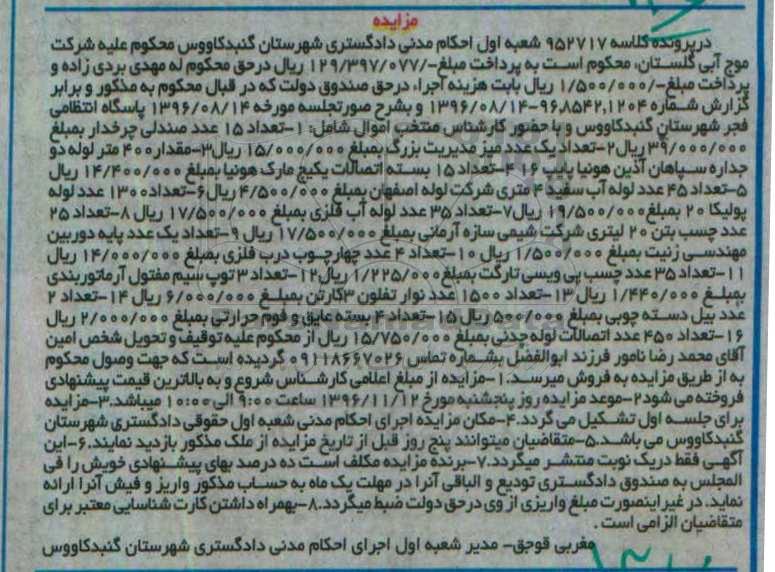 مزایده
درپرونده کلاسه 952717 شعبه اول احکام مدنی دادگستری شهرستان گنبدکاووس محکوم علیه شرکت
موج آبی گلستان، محکوم است به پرداخت مبلغ-/129/397/077 ریال درحق محکوم له مهدی بردی زاده و
پرداخت مبلغ-/1/500/000 ریال بابت هزینه اجراء درحق صندوق دولت که در قبال محکوم به مذکور و برابر
گزارش شماره 968542,1204-1396/08/14 و بشرح صورتجلسه مورخه 1396/08/14 پاسگاه انتظامی
فجر شهرستان گنبدکاووس و با حضور کارشناس منتخب اموال شامل: 1-تعداد 15 عدد صندلی چرخدار بمبلغ
39/000/000 ریال2-تعداد یک عدد میز مدیریت بزرگ بمبلغ 15/000/000 ریال3-مقدار 400 متر لوله دو
جداره سپاهان آذین هونیا پایپ 16 4-تعداد 15 بسته اتصالات پکیج مارک هونیا بمبلغ 14/400/000 ریال
5-تعداد 45 عدد لوله آب سفید 4 متری شرکت لوله اصفهان بمبلغ 4/500/000 ریال6-تعداد 1300 عدد لوله
پولیکا 20 بمبلغ 19/500/000 ریال7-تعداد 35 عدد لوله آب فلزی بمبلغ 17/500/000 ریال 8-تعداد 25
عدد چسب بتن 20 لیتری شرکت شیمی سازه آرمانی بمبلغ 17/500/000 ریال 9-تعداد یک عدد پایه دوربین
مهندسی زنیت بمبلغ 1/500/000 ریال 10-تعداد 4 عدد چهارچوب درب فلزی بمبلغ 14/000/000 ریال
11-تعداد 35 عدد چسب پی ویسی تارگت بمبلغ 1/225/000 ریال12-تعداد 3 توپ سیم مفتول آرماتوربندی
بمبلغ 1/440/000 ریال 13-تعداد 1500 عدد نوار تفلون 3کارتن بمبلغ 6/000/000 ریال 14-تعداد 2
عدد بیل دسته چوبی بمبلغ 500/000 ریال 15-تعداد 4 بسته عایق و فوم حرارتی بمبلغ 2/000/000 ریال
16-تعداد 450 عدد اتصالات لوله چدنی بمبلغ 15/750/000 ریال از محکوم علیه توقیف و تحویل شخص امین
آقای محمد رضا نامور فرزند ابوالفضل بشماره تماس 09118667026 گردیده است که جهت وصول محکوم
به از طریق مزایده به فروش میرسد.1-مزایده از مبلغ اعلامی کارشناس شروع و به بالاترین قیمت پیشنهادی
فروخته می شود2-موعد مزایده روز پنجشنبه مورخ 1396/11/12 ساعت 9:00 الی 10:00 میباشد.3-مزایده
برای جلسه اول تشکیل می گردد.4-مکان مزایده اجرای احکام مدنی شعبه اول حقوقی دادگستری شهرستان
گنبدکاووس می باشد.5-متقاضیان میتوانند پنج روز قبل از تاریخ مزایده از ملک مذکور بازدید نمایند.6-این
آگهی فقط دریک نوبت منتشر میگردد.7-برنده مزایده مکلف است ده درصد بهای پیشنهادی خویش را فی
المجلس به صندوق دادگستری تودیع و الباقی آنرا در مهلت یک ماه به حساب مذکور واریز و فیش آنرا ارائه
نماید. در غیر اینصورت مبلغ واریزی از وی درحق دولت ضبط میگردد.8-بهمراه داشتن کارت شناسایی معتبر برای
متقاضیان الزامی است .
مغربی قوجق- مدیر شعبه اول اجرای احکام مدنی دادگستری شهرستان گنبدکاووس